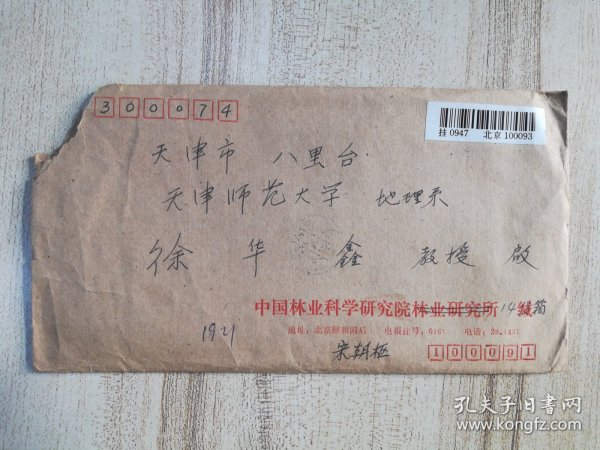 300074
挂0947 北京100093
天津市 八里台
天津师范大学 地理系
徐华鑫 教授 啟
中国林业科学研究院林业研究所 14信箱
地址：北京颐和园后 电报挂号：0461 电话：28.1431
宋朝枢
100091
孔夫子旧书网
www.kongfz.com